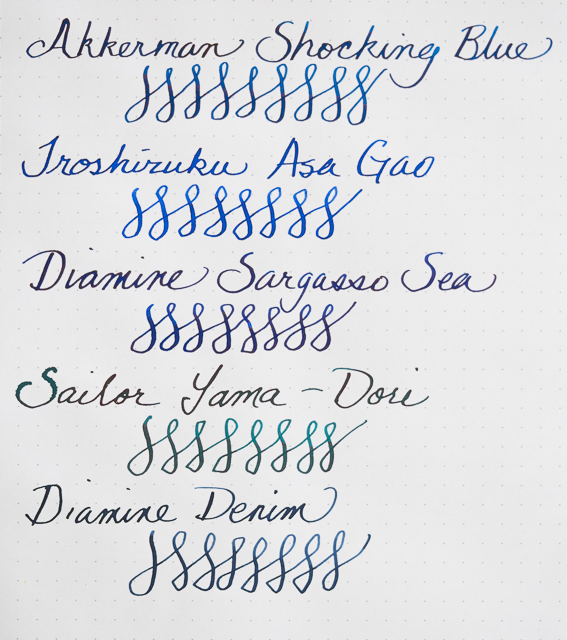 Akkerman Shocking Blue
Iroshizuku Asa Gao
Diamine Sargasso Sea
Sailor Yama-Dori
Diamine Denim